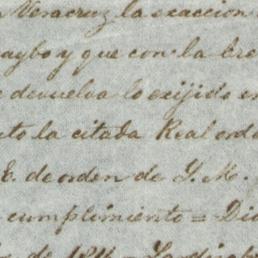 Veracruz la exaccion
aybo y que con la bre
devuelva lo exijido en
to la citada Real ord
E. de orden de S. M.
cumplimiento = Dio
de 1814 =